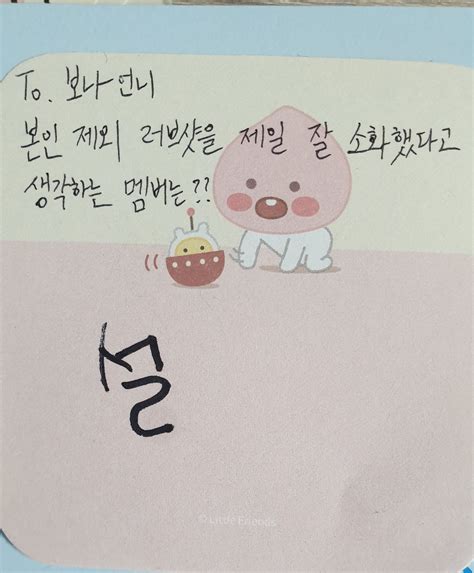 To. 보나언니
본인 제외 러브샷을 제일 잘 소화했다고
생각하는 멤버는??
설
© Little Friends